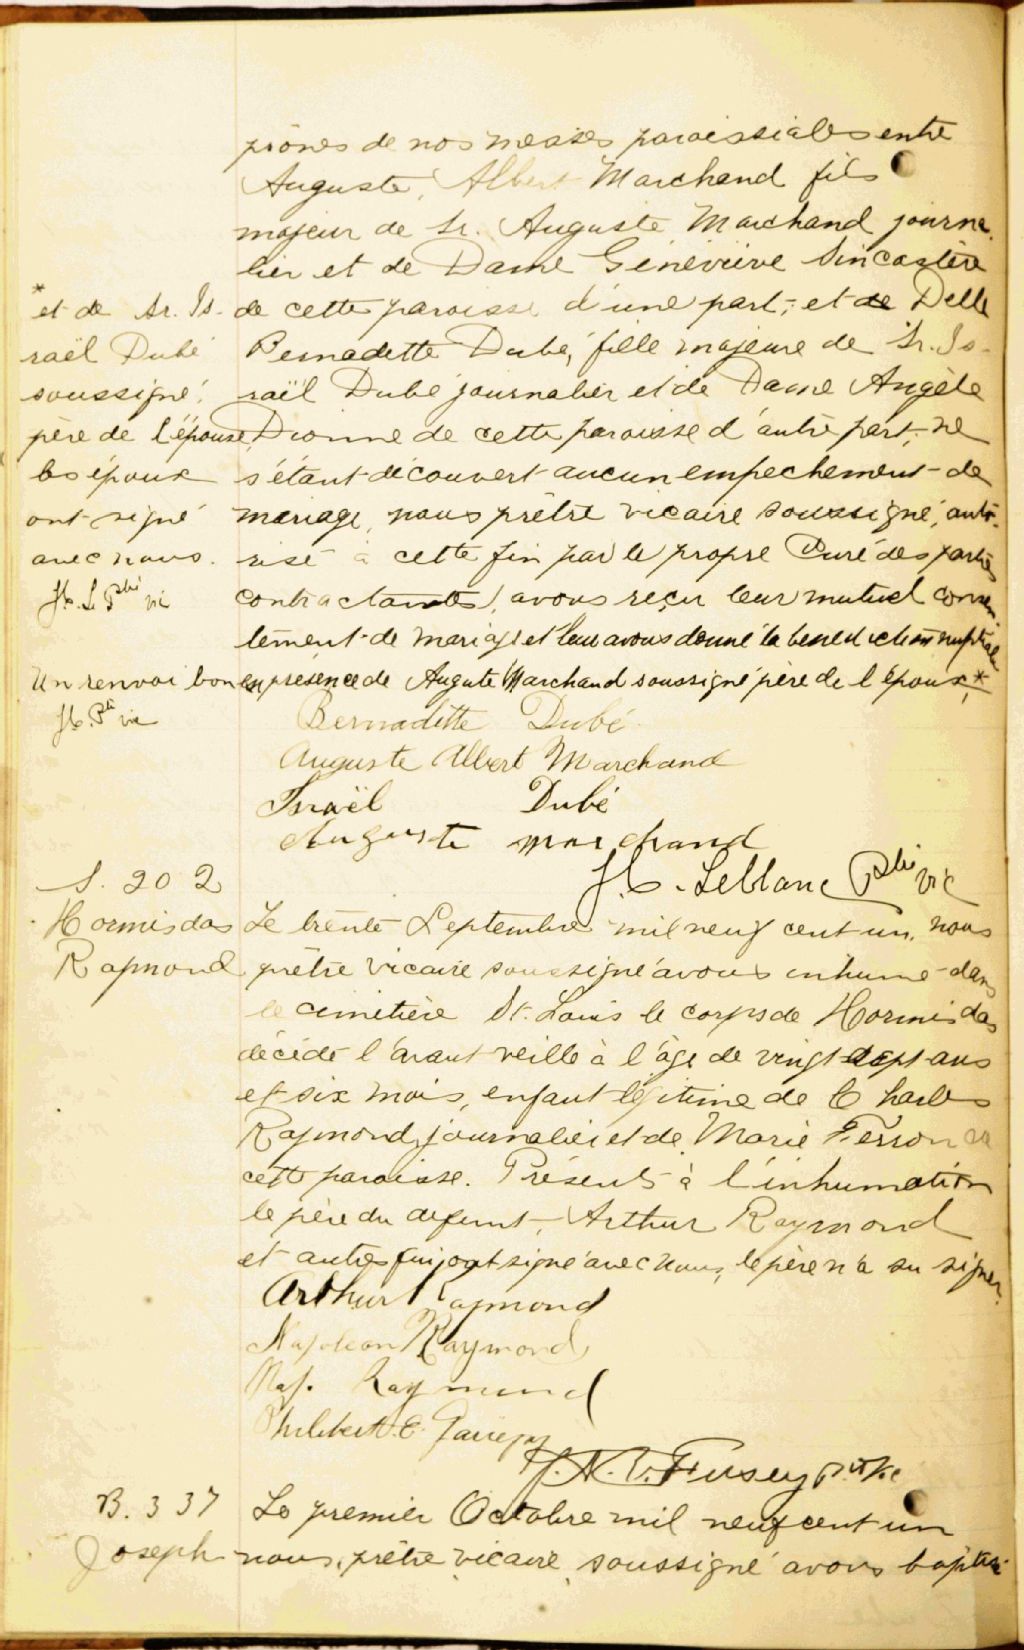 prônes de nos messes paroissiales entre
Auguste, Albert Marchand fils
majeur de Sr. Auguste Marchand journa-
lier et de Dame Géneviève Sincastère
* et de Sr. Is-
raël Dubé
soussigné
père de l'épouse,
les époux
ont signé
avec nous.
J.C. L. Ptre vic
Un renvoi bon
J.C. Ptre vic
de cette paroisse d'une part; et de Delle
Bernadette Dubé, fille majeure de Sr. Is-
raël Dubé journalier et de Dame Angèle
Dionne de cette paroisse d'autre part; ne
s'étant découvert aucun empechement de
mariage, nous prêtre vicaire soussigné, auto-
risé à cette fin par le propre Curé des parties
contractantes, avons reçu leur mutuel consen-
tement de mariage et leur avons donné la benediction nuptiale
en présence de Auguste Marchand soussigné père de l'époux,*
Bernadette Dubé
Auguste Albert Marchand
Israël Dubé
Auguste marchand
J.C. Leblanc Ptre vic
S. 202
Hormisdas
Raymond
Le trente Septembre mil neuf cent un, nous
prêtre vicaire soussigné avons inhumé dans
le cimetière St. Louis le corps de Hormisdas
décédé l'avant veille à l'âge de vingt-sept ans
et six mois, enfant légitime de Charles
Raymond, journalier et de Marie Tesson de
cette paroisse. Présents à l'inhumation
le père du defunt, Arthur Raymond
et autres qui ont signé avec nous, le père n'a su signer.
Arthur Raymond
Napoleon Raymond
Nap. Raymond
Philibert E. Gariepy
J.N.V. Fusey Ptre Vic
B. 337
Joseph
Le premier Octobre mil neuf cent un
nous, prêtre vicaire, soussigné avons baptisé